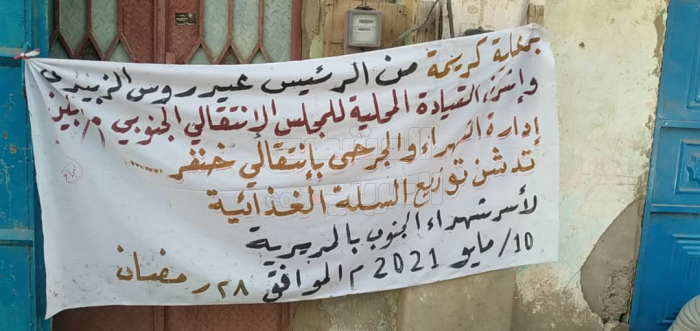 بحماية كريمة من الرئيس عيدروس الزبيدي
وإشراف القيادة المحلية للمجلس الإنتقالي الجنوبي م/أبين
إدارة الشهداء والجرحى بإنتقالي خنفر
تدشن توزيع السلة الغذائية
لأسر شهداء الجنوب بالمديرية
10/مايو 2021م الموافق ٢٨ رمضان